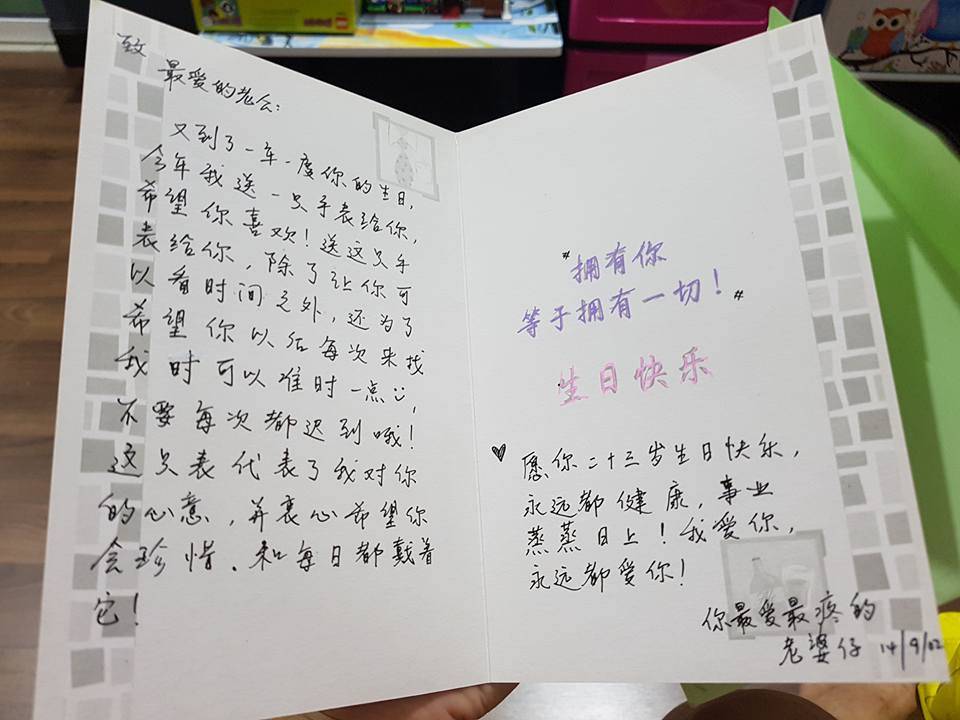 致
最爱的老公:
又到了一年一度你的生日,
今年我送一只手表给你,
希望你喜欢!送这只手
表给你,除了让你可
以看时间之外,还为了
希望你以后每次来找
我时可以准时一点☺,
不要每次都迟到哦!
这只表代表了我对你
的心意,并衷心希望你
会珍惜、和每日都戴着
它!
"拥有你
等于拥有一切!"
生日快乐
♥ 愿你二十三岁生日快乐,
永远都健康,事业
蒸蒸日上!我爱你,
永远都爱你!
你最爱最疼的
老婆仔 14/9/02